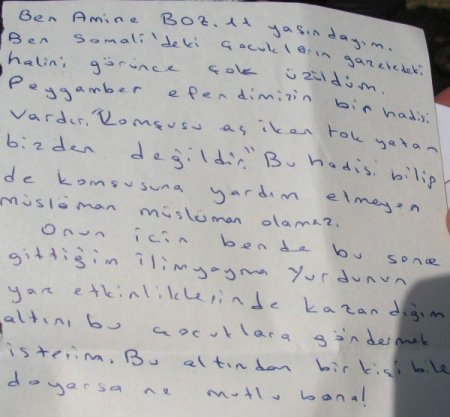 Ben Amine BOZ. 11 yaşındayım.
Ben Somali'deki çocukların gazetedeki
halini görünce çok üzüldüm.
Peygamber efendimizin bir hadisi
vardır. "Komşusu aç iken tok yatan
bizden değildir." Bu hadisi bilip
de komşusuna yardım etmeyen
müslüman müslüman olamaz.
Onun için bende bu sene
gittiğim ilim yayma Yurdunun
yaz etkinliklerinde kazandığım
altını bu çocuklara göndermek
isterim. Bu altından bir kişi bile
doyarsa ne mutlu bana!